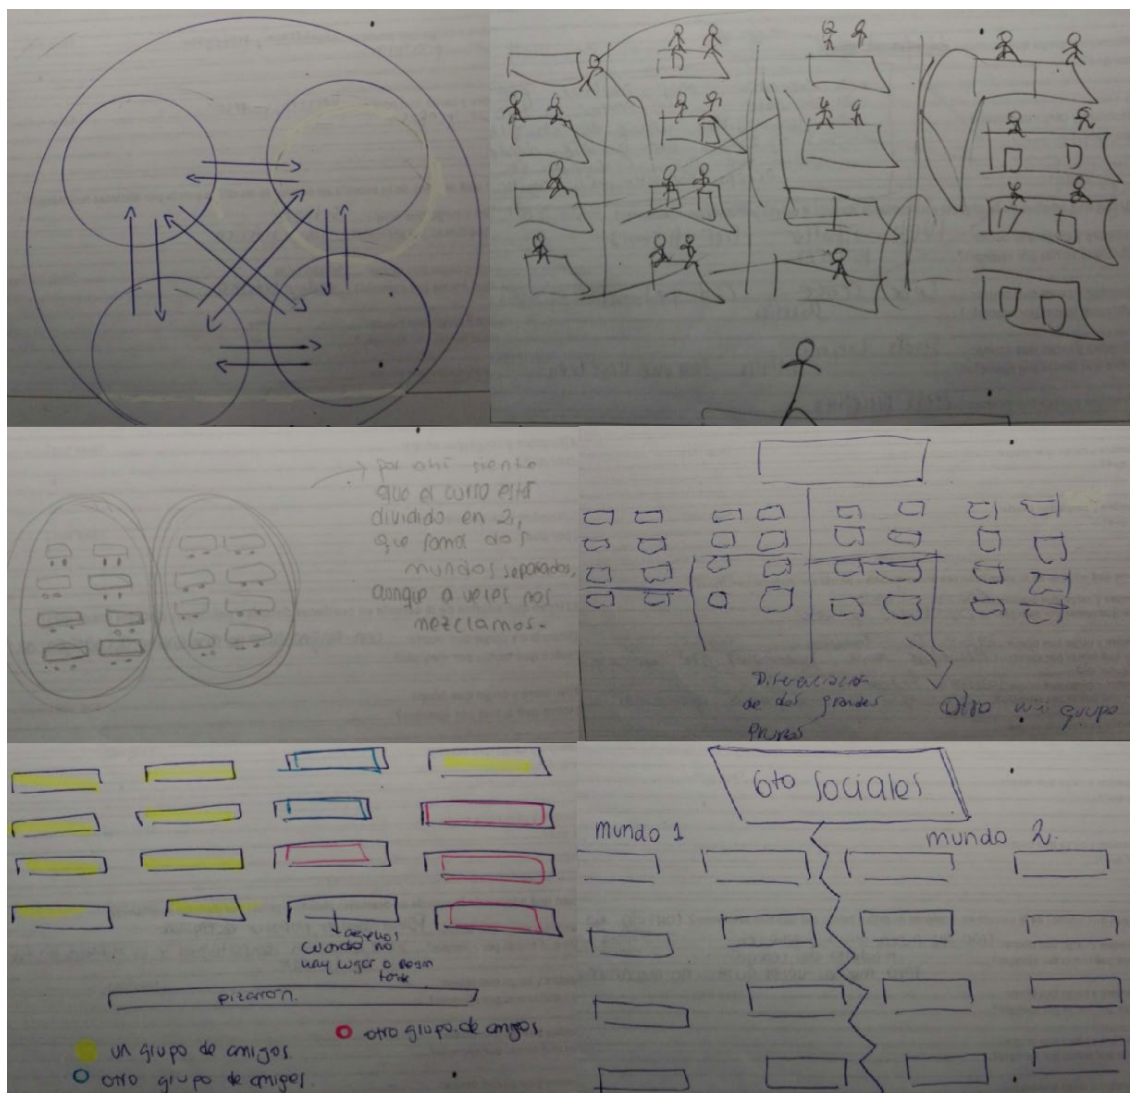 por ahí siento
que el curso está
dividido en 2,
que somos dos
mundos separados,
aunque a veces nos
mezclamos.
Diferenciación
de dos grandes
grupos
Otro mini grupo
cuando no
hay lugar o llegan
tarde
pizarrón.
otro grupo de amigos
un grupo de amigos.
otro grupo de amigos.
6to Sociales
mundo 1
mundo 2.